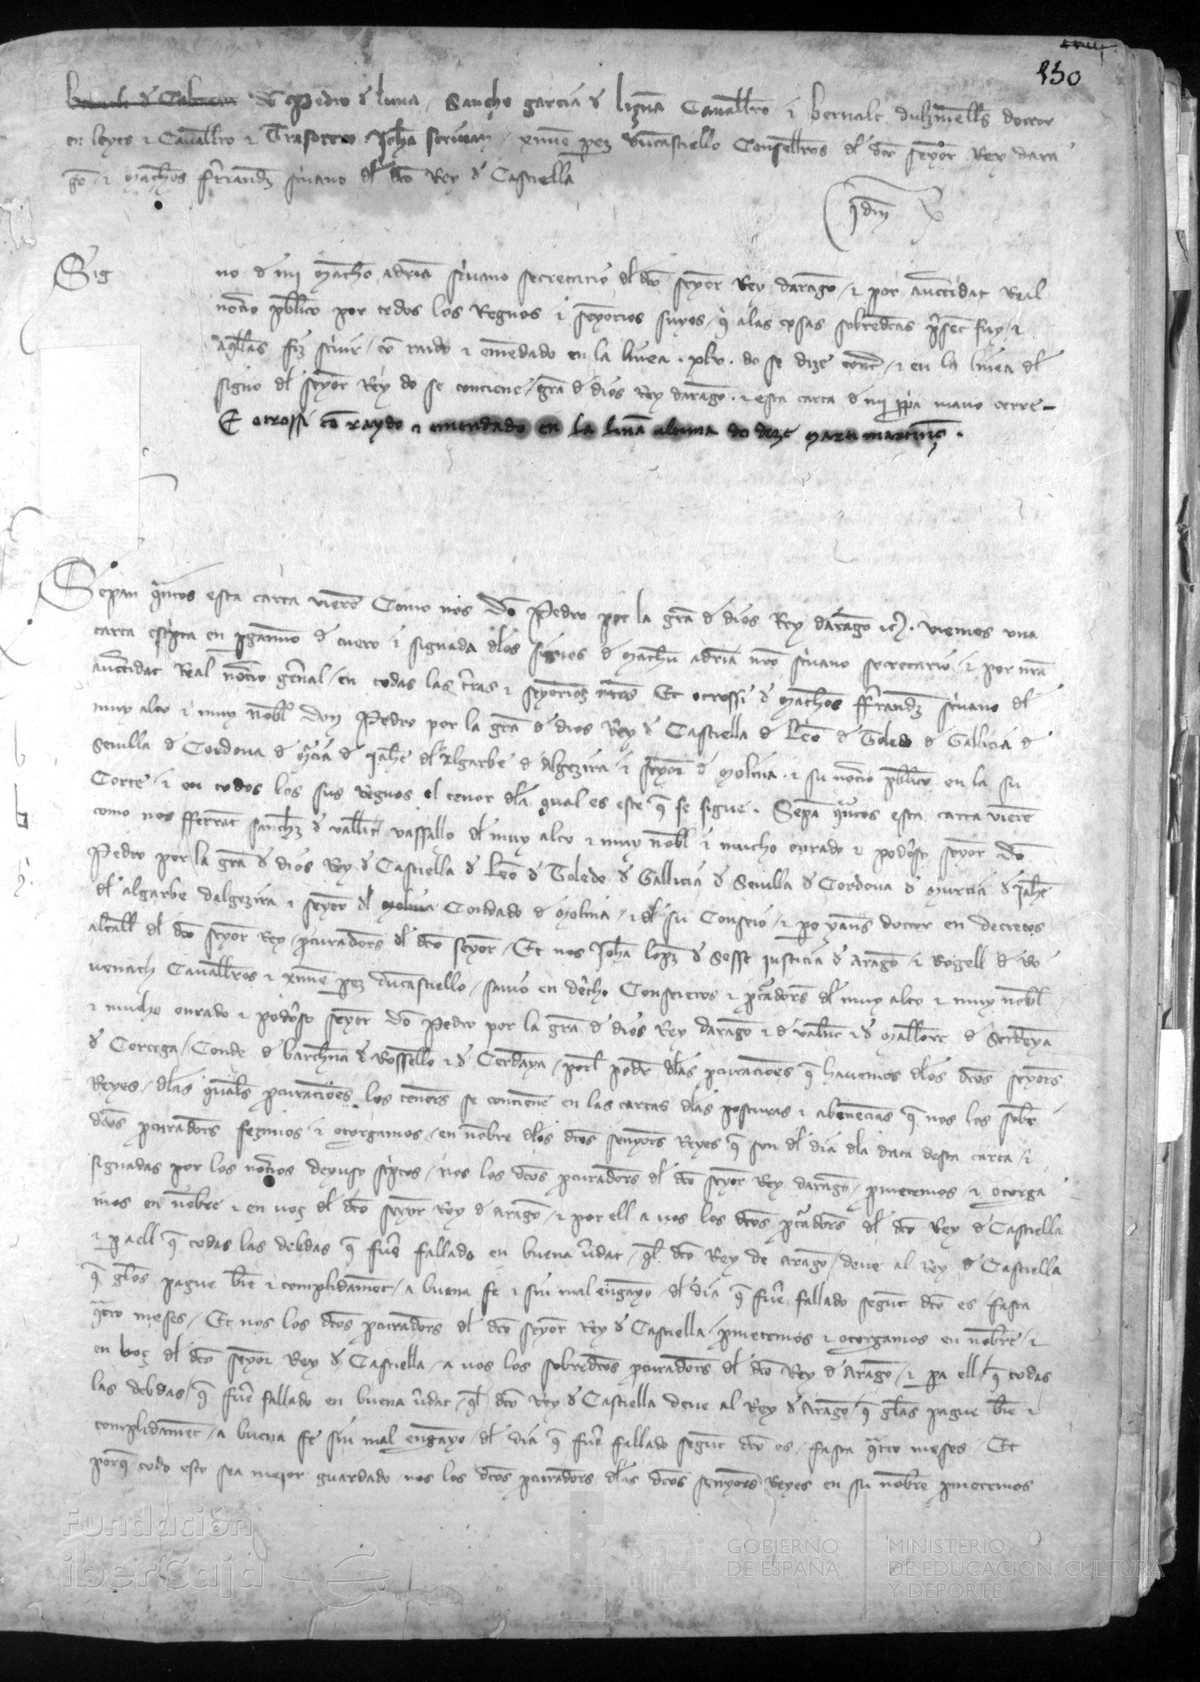 150
don Pedro de luna / Sancho garcia de liznã Cauallõ i bernalt dulzinells doctor
en leyes & Cauallõ & Trasorero Johã scriuan / xime perez duncastiello Conselleros dl dco seyor Rey dara
gõ & Matheos Ferrandz scriuano dl dco Rey de Castiella
Sig
no de mi Matheo adriã scriuano secretario dl dco seyor Rey daragõ / & por auctoridat Real
notario publico por todos los Regnos i seyorios suyos / q a las cosas sobredcas present fuy / &
aqllas fiz scriuir / cõ raido & emendado en la linea . xlv . do se dize / & en la linea dl
signo dl seyor Rey do se contiene / gra d dios Rey daragõ . & esta carta d mi ppia mano cerre
E otrossi cõ raydo & emendado en la linea ultima do dize
Sepan quantos esta carta vierẽ Como nos dõ Pedro por la gra d dios Rey daragõ &c. viemos una
carta escripta en pgamino d cuero i signada dlos signos d Matheu adriã nro scriuano secretario / & por nrã
auctoridat Real notario gñral / en todas las trras & seyorios nros Et otrossi d Matheos Ferrandz scriuano dl
muy alto & muy noble don Pedro por la gra d dios Rey d Castiella d Leõ d Toledo d Gallicia d
Seuilla d Cordoua d Mcia d Jahe dl Algarbe d Algezira & seyor d Molina . & su notario publico en la su
Corte / & en todos los sus regnos el tenor dla qual es este q se sigue . Sepã qntos esta carta vierẽ
como nos fferrat sanchz d vallit vassallo dl muy alto & muy nobl & mucho onrado & podoso seyor dõ
Pedro por la gra d dios Rey d Castiella d Leõ d Toledo d Gallicia d Seuilla d Cordoua d Murcia d Jahe
dl algarbe dalgezira & seyor dl Condado d Molina / & dl su Conseio / & po yans doctor en decretos
alcall dl dco seyor Rey / pcuradors dl dco seyor / Et nos Johã lopz d Sesse justicia d Aragõ & Rogell d Ro
uenach Caualleros & xime pez duncastiello / sauio en drecho Conseieros & pcadors dl muy alto & muy nobl
& mucho onrado & podoso seyor dõ Pedro por la gra d dios Rey daragõ & d valenc & d Mallorc d Serdeya
d Corcega / Conde d barchna d Rossello & d Cerdaya / porl podr dlas pcuraciones q hauemos dlos dcos seyors
Reyes / dlas quals pcuraciões los tenors se contienẽ en las cartas dlas posturas & abenecias q nos los sobre
dcos pcuradors feziemos / & otorgamos / en nõbre dlos dcos senyors Reyes q son dl dia dla data desta carta / &
signadas por los notarios deyuso scriptos / nos los dcos pcuradors dl dco seyor Rey daragõ / pmetemos & otorga
mos en nõbre & en uoz dl dco seyor Rey d Aragõ / & por ell a uos los dcos pcadors dl dco Rey d Castiella
& pa ell q todas las debdas q fuerẽ fallado en buena vdat / ql dco Rey de Aragõ / deue al Rey d Castiella
q glos pague biẽ & complidament / a buena fe & sin mal engayo / dl dia q fuer fallado segunt dco es / fasta
qtro meses / Et nos los dcos pcuradors dl dco seyor Rey d Castiella / pmetemos & otorgamos en nõbre / &
en uoz dl dco seyor Rey d Castiella / a uos los sobredcos pcuradors dl dco Rey d Aragõ / & pa ell q todas
las debdas / q fuer fallado en buena vdat / ql dco Rey d Castiella deue al Rey d Aragõ / q glas pague biẽ &
complidament / a buena fe sin mal engayo / dl dia q fuer fallado segunt dco es / fasta qtro meses / Et
porq todo esto sea mejor guardado nos los dcos pcuradors dlos dcos senyors Reyes en su nõbre pmetemos
Fundación
iberCaja
GOBIERNO
DE ESPAÑA
MINISTERIO
DE EDUCACIÓN, CULTURA
Y DEPORTE